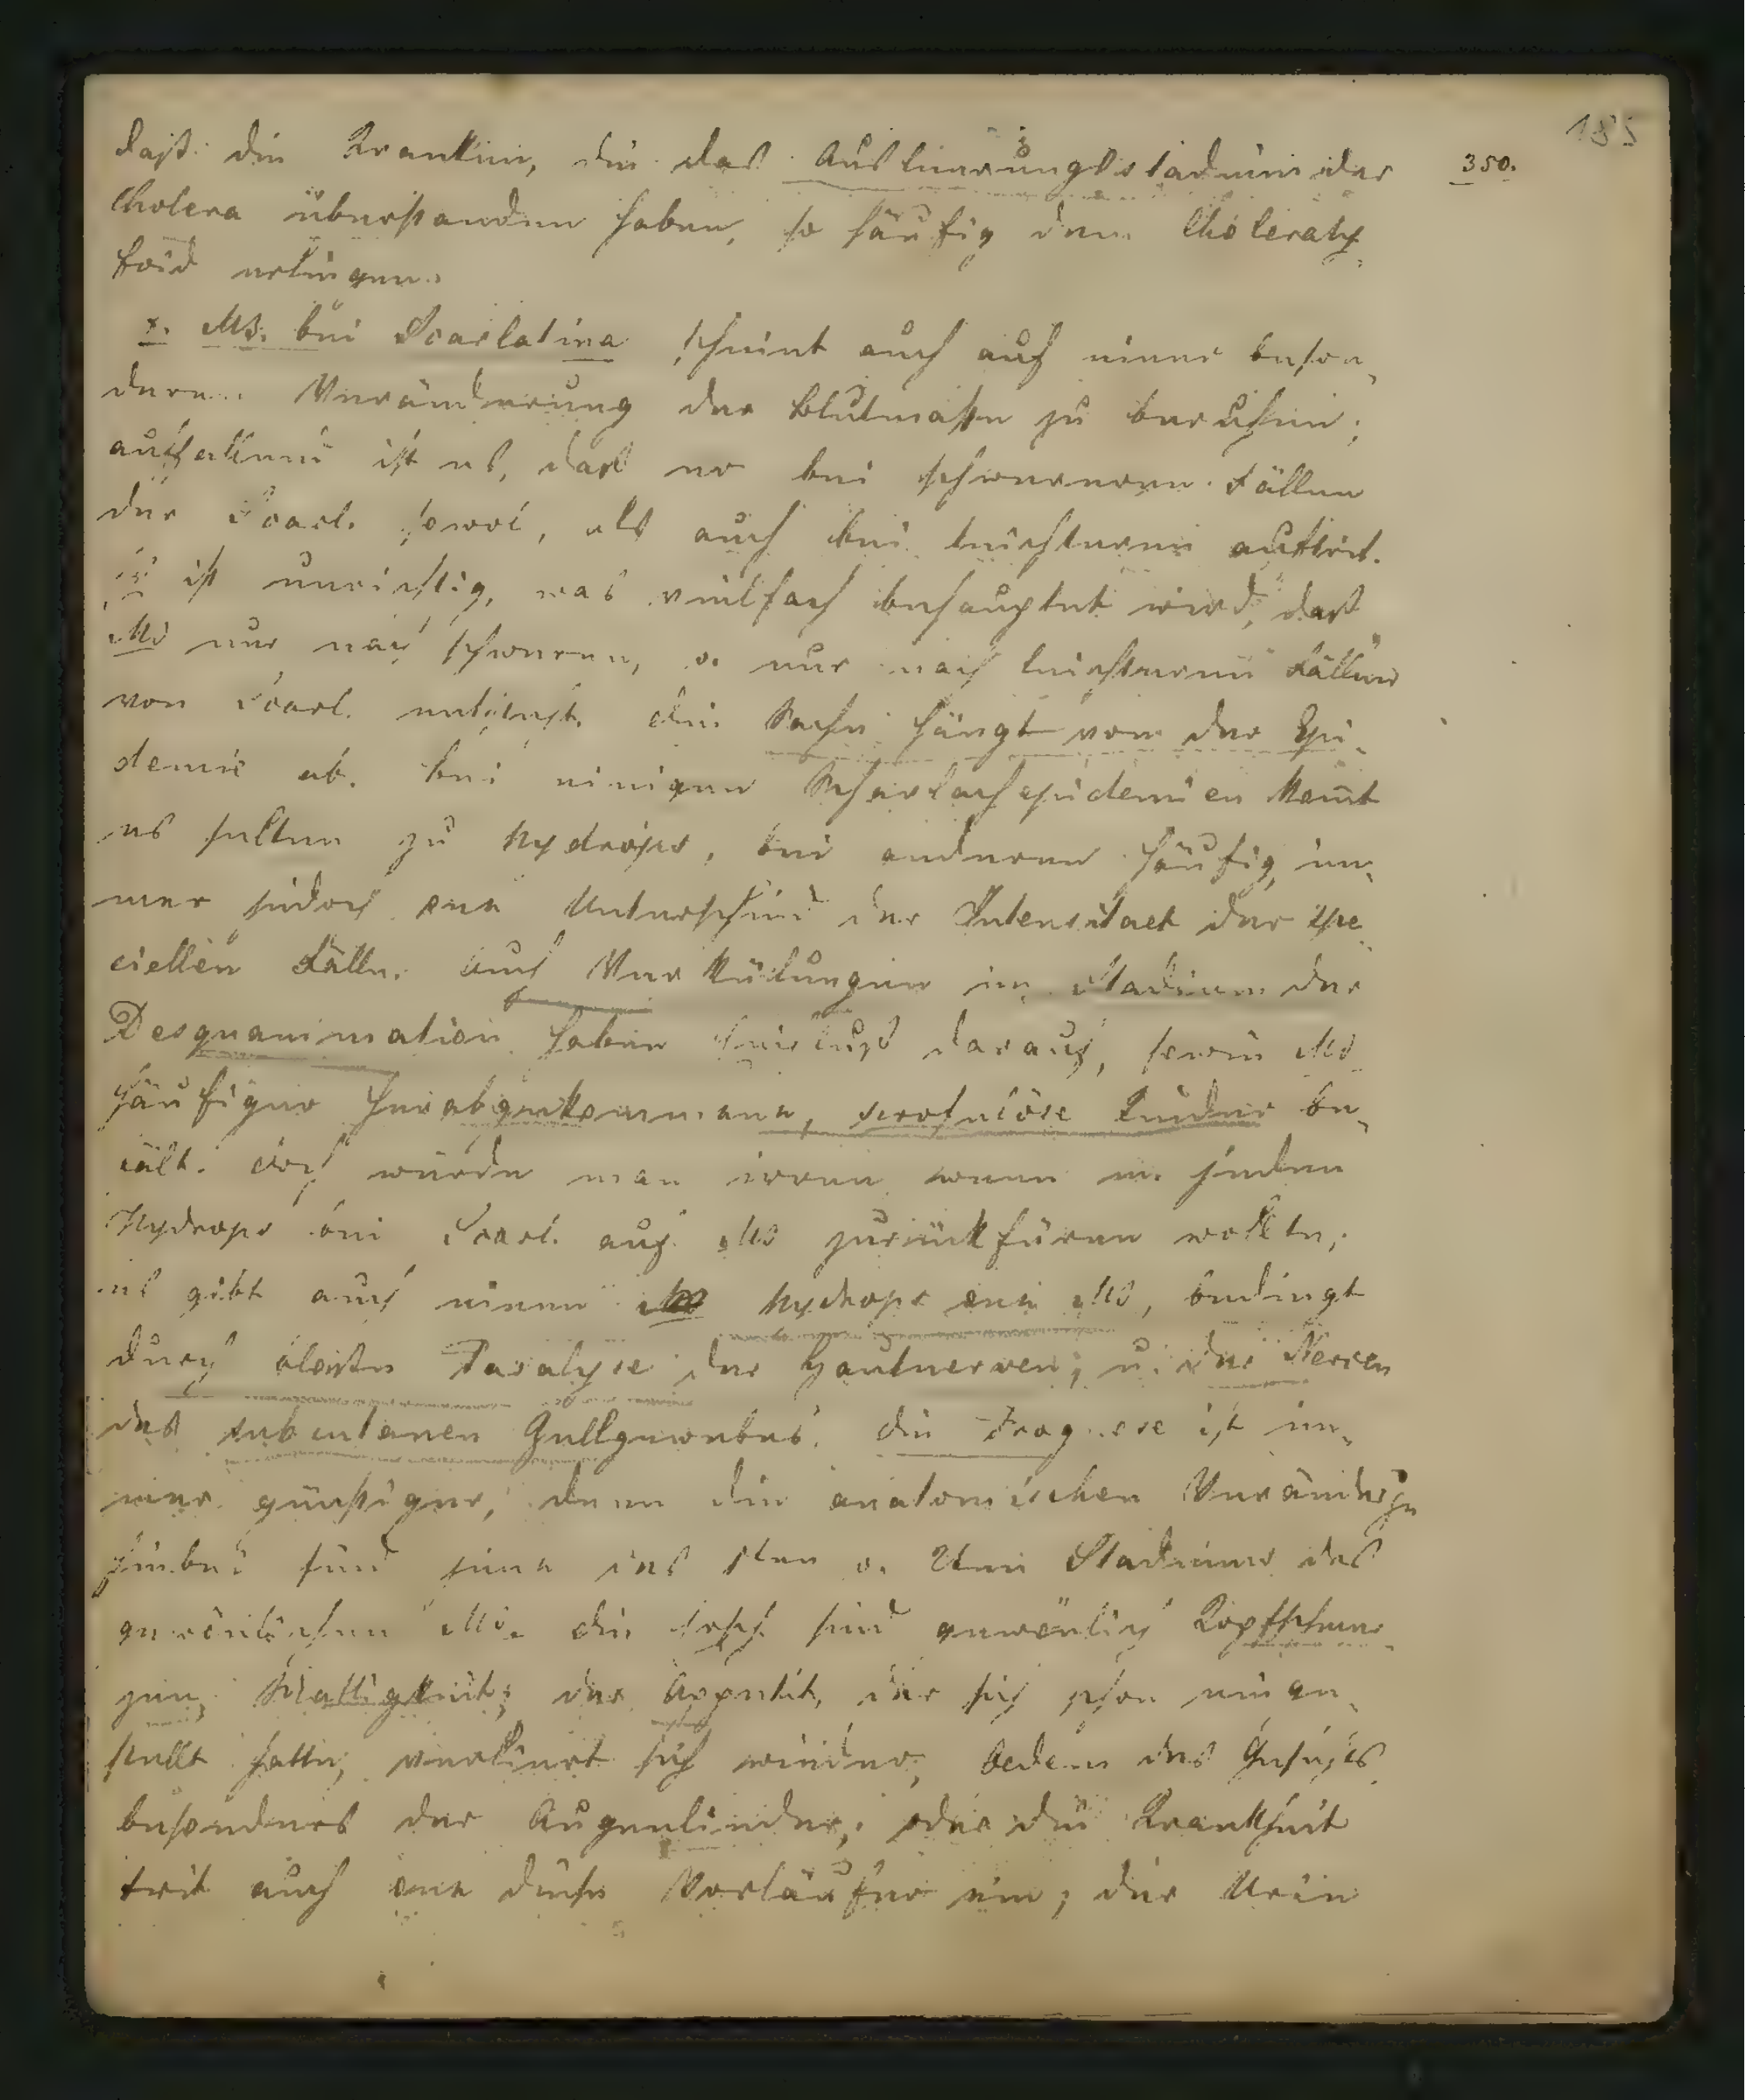 185
350.
dass die Kranken, die das Ausleerungsstadium der
Cholera überstanden haben, so häufig dem Choleraty-
foid erliegen.
x. MB. bei Scarlatina scheint auch auf einer beson-
deren Veränderung der Blutmasse zu beruhen;
auffallend ist es, dass er bei schwereren Fällen
der Scarl. sowol, als auch bei leichteren auftrit.
Es ist unrichtig, was vielfach behauptet wird, dass
MB nur nach schweren, o. nur nach leichteren Fällen
von Scarl. entsteht. die Sache hängt von der Epi-
demie ab. bei einigen Scharlachepidemien komt
es selten zu Hydrops, bei anderen häufig, im-
mer jedoch one Unterschied der Intensitaet der spe-
ciellen Fälle. auch Verkülungen im Stadium der
Desquammation haben Einfluss darauf, sowie MB
häufiger herabgekommene, scrofulöse Kinder be-
fält. doch würde man irren wenn m. jeden
Hydrops bei Scarl. auf MB zurükfüren wollte;
es gibt auch einen Hydrops one MB, bedingt
durch Paralyse der Hautnerven; u. der Nerven
des subcutanen Zellgewebes. die Prognose ist im-
mer günstiger, denn die anatomischen Veränderg
sind jene des 1ten o. 2ten Stadiums des
gewönlichen MB. die sind gewönlich Kopfschmer-
zen, Mattigkeit; der Appetit, der sich schon einge-
stellt hatte, verliert sich wieder, Oedem des Gesichts
besonders der Augenlieder; oder die Krankheit
trit auch one diese Vorläufer ein; der Urin